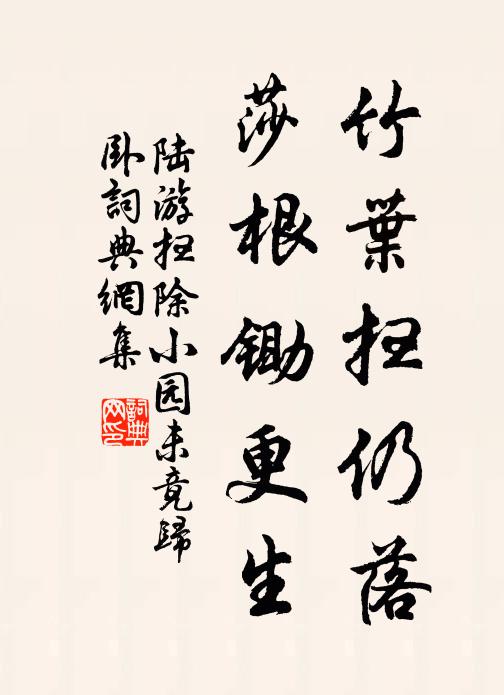 竹葉扫仍落
莎根鋤更生
陆游扫除小园未竟歸
卧詞典網集
詞典
网印